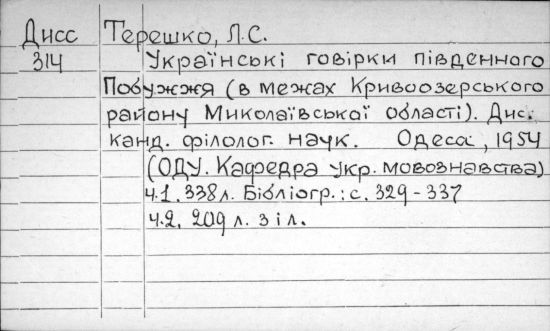 Дисс Терешко, Л.С.
314 Українські говірки південного
Побужжя (в межах Кривоозерського
району Миколаївської області). Дис.
канд. філолог. наук. Одеса, 1954
(ОДУ. Кафедра укр. мовознавства)
ч.1. 338 л. Бібліогр.: с. 329-337
ч.2. 209 л. з іл.